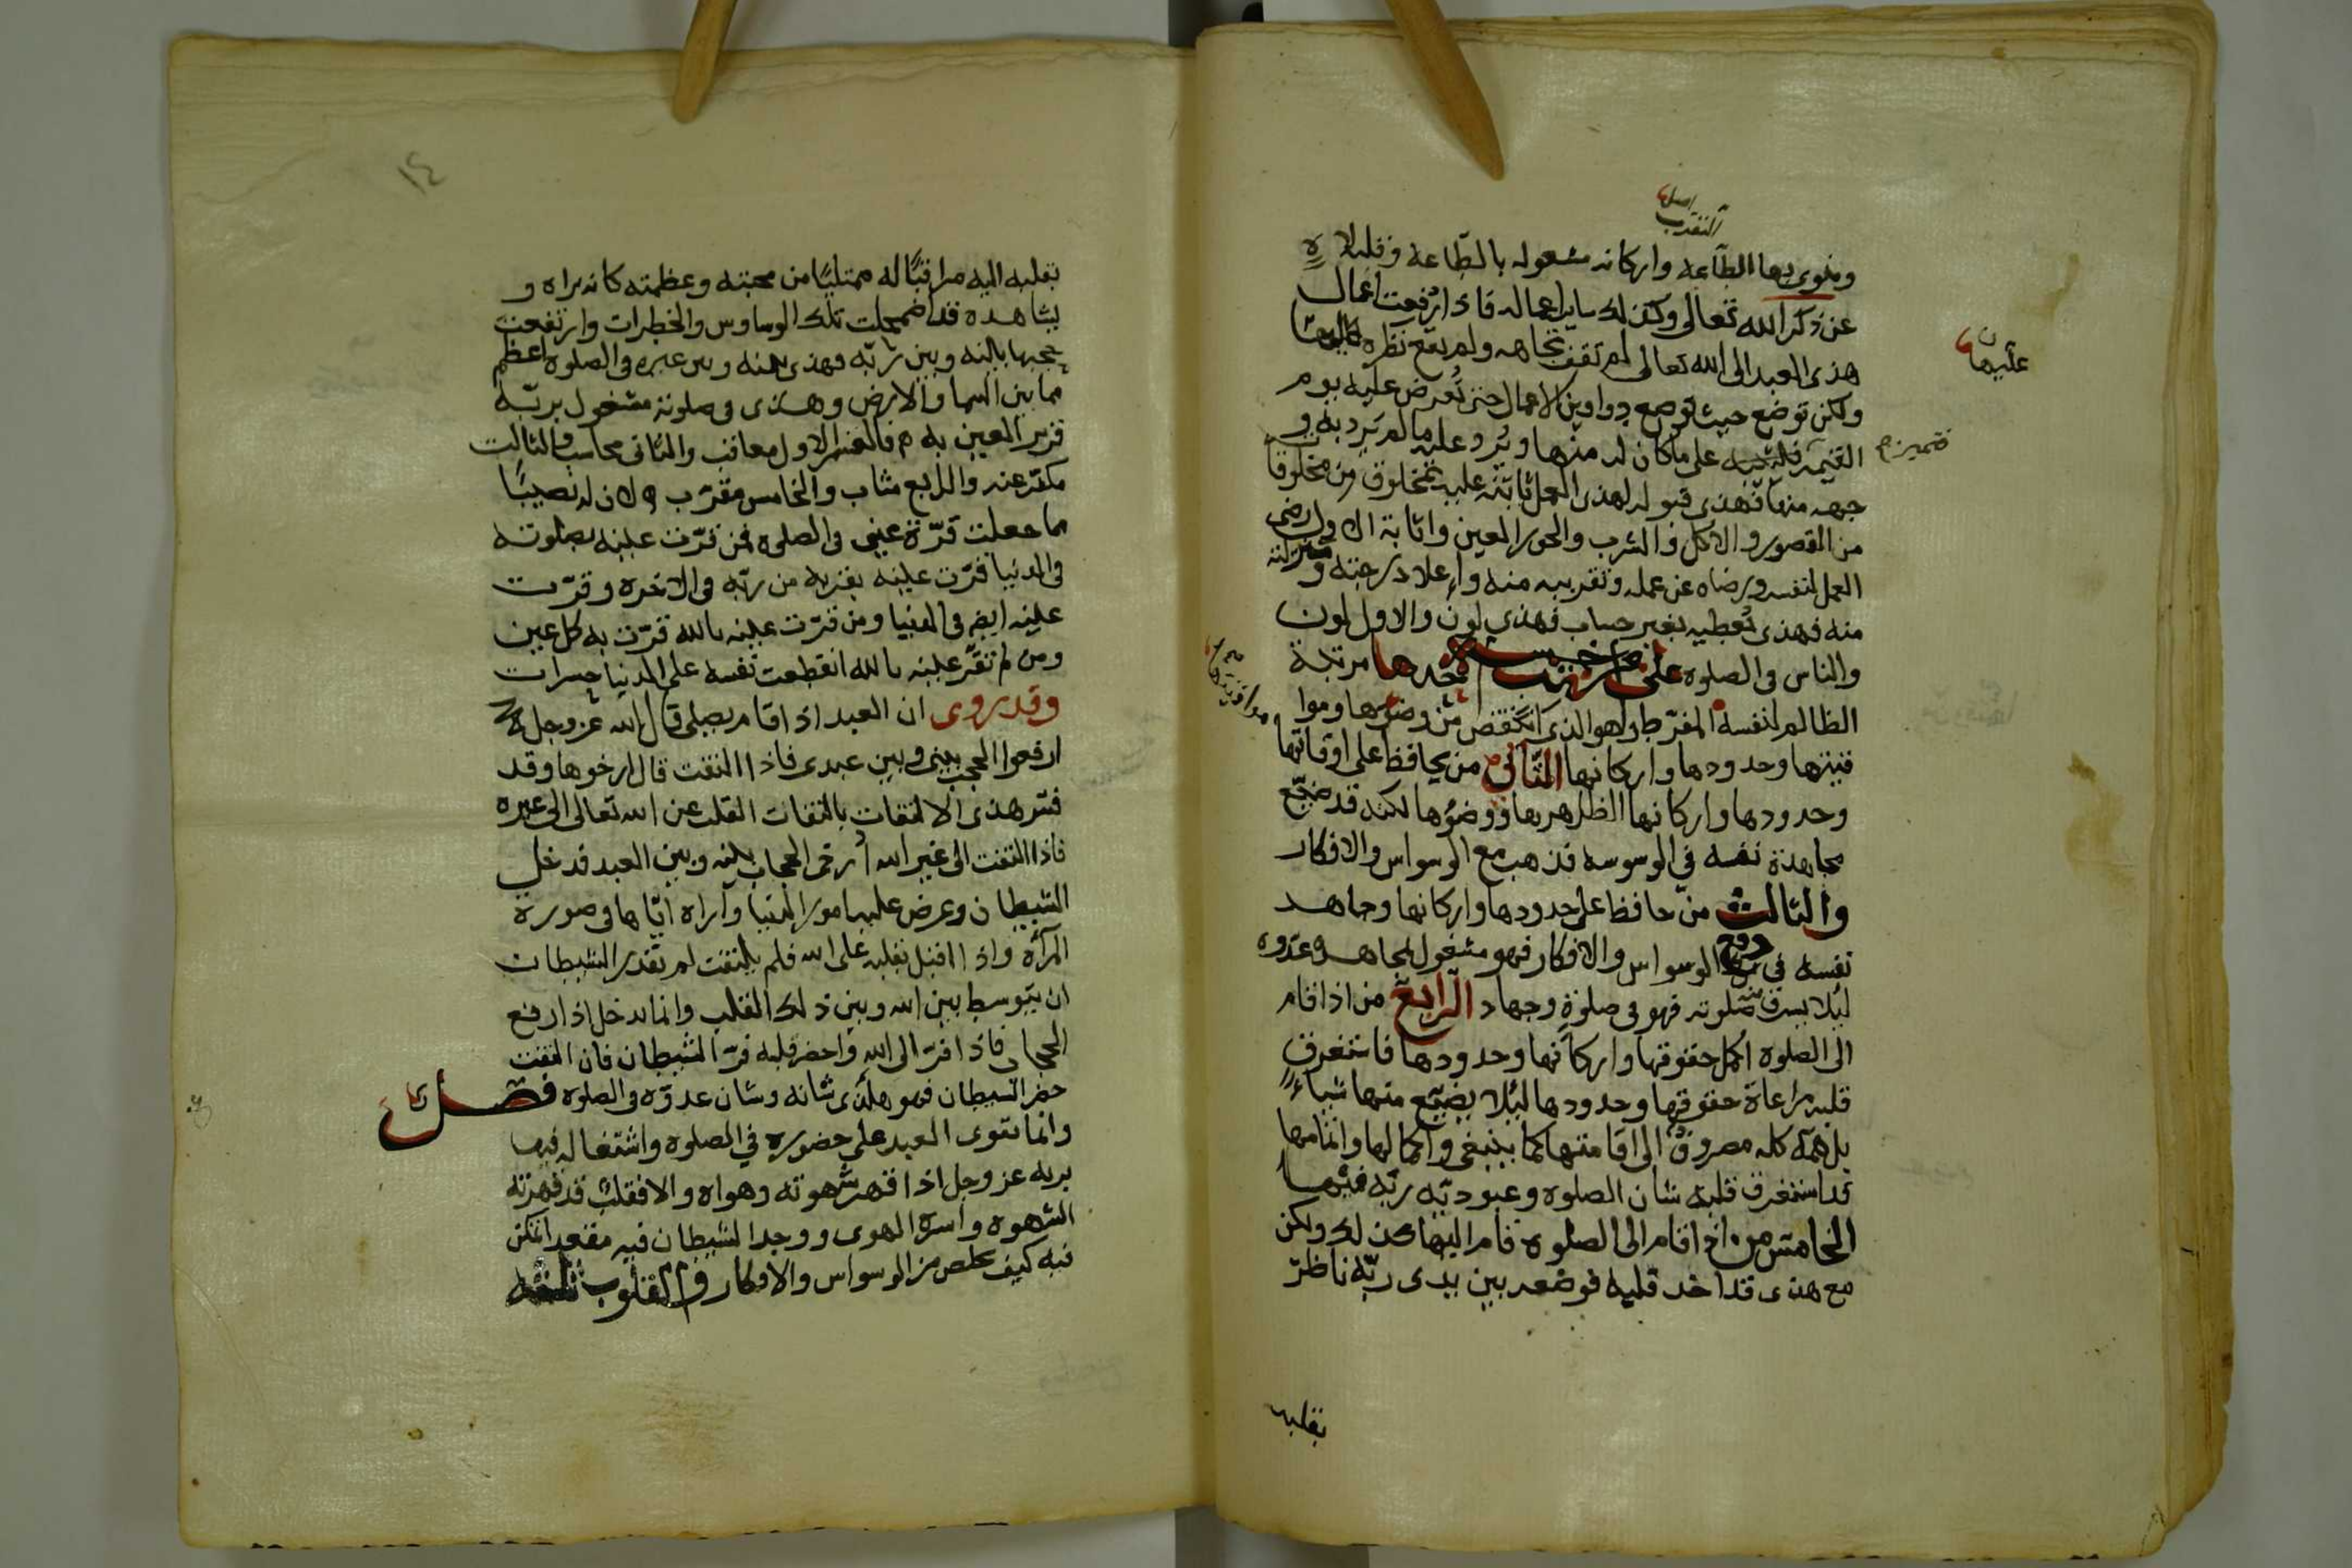 التقرب
اصل
وينوي بها الطاعه واركانه مشغوله بالطاعه وقلبه لاه
عن ذكر الله تعالى وكذلك ساير اعماله فاذا ارتفعت اعمال
هذى العبد الى الله تعالى لم تقف تجاهه ولم يقع نظره
عليها ن
ولكن توضع حيث توضع دواوين الاعمال حتى تعرض عليه يوم
القيمه على ما كان له منها ويرد عليه ما لم يرد به و
فتميز م
جهه منها فهذى قبوله لهذى العمل اثابته عليه بمخلوق من مخلوقا
من القصور والاكل والشرب والحور العين واثابة الاول رضى
العمل لنفسه ورضاه عن عمله وتقريبه منه واعلا درجته و منزلته
منه فهذى يعطيه بغير حساب فهذى لون والاول لون
والناس في الصلوه على مراتب خمسه احدها مرتبة
الظالم لنفسه المفرط وهو الذى انتقص من وضوءها وموا
مواقيتها
قيتها وحدودها واركانها الثاني من يحافظ على اوقاتها
وحدودها واركانها الظاهره ووضوءها لكنه قد ضيع
مجاهدة نفسه في الوسوسه فذهب مع الوسواس والافكار
والثالث من حافظ على حدودها واركانها وجاهد
نفسه في دفع الوسواس والافكار فهو مشغول بمجاهده عدوه
ليلا يسرق منه صلوته فهو في صلوة وجهاد الرابع من اذا قام
الى الصلوه اكمل حقوقها واركانها وحدودها فاستغرق
قلبه مراعاة حقوقها وحدودها ليلا يضيع منها شياء
بل همه كله مصروف الى اقامتها كما ينبغى واكمالها واتمامها
قد استغرق قلبه شان الصلوه وعبوديه ربه فيها
الخامس من اذا قام الى الصلوه قام اليها كذلك ولكن
مع هذى قد اخذ قلبه فوضعه بين يدى ربه ناظر
بقلبه
١٤
بقلبه اليه مراقبًا له ممتليًا من محبته وعظمته كانه يراه و
يشاهده قد اضمحلت تلك الوساوس والخطرات وارتفعت
حجبها بينه وبين ربه فهذى بينه وبين غيره في الصلوه اعظم
مما بين السما والارض وهذى في صلوته مشغول بربه
قرير العين به م فالقسم الاول معاقب والثانى محاسب والثالت
مكفر عنه والرابع مثاب والخامس مقرب لان له نصيبًا
مما جعلت قرة عينى في الصلوه فمن قرت عينه بصلوته
في الدنيا قرت عينه بقربه من ربه في الاخره وقرت
عينه ايض في الدنيا ومن قرت عينه بالله قرت به كل عين
ومن لم تقر عينه بالله انقطعت نفسه على الدنيا حسرات
وقد روى ان العبد اذا قام يصلى قال الله عز وجل
ارفعوا الحجب بينى وبين عبدى فاذا التفت قال ارخوها وقد
فسر هذى الالتفات بالتفات القلب عن الله تعالى الى غيره
فاذا التفت الى غير الله ارخى الحجاب بينه وبين العبد فدخل
الشيطان وعرض عليه امور الدنيا وآراه اياها في صورة
المرآة واذا اقبل بقلبه على الله فلم يلتفت لم يقدر الشيطان
ان يتوسط بين الله وبين ذلك القلب وانما يدخل اذا رفع
الحجاب فاذا فر الى الله واحضر قلبه فر الشيطان فان التفت
حضر الشيطان فهو هكذى شانه وشان عدوه في الصلوه فصل
وانما يقوى العبد على حضوره في الصلوه واشتغاله فيها
بربه عز وجل اذا قهر شهوته وهواه والا فقلب قد قهرته
الشهوه واسره الهوى ووجد الشيطان فيه مقعدا تمكن
فيه كيف يخلص من الوسواس والافكار والقلوب ثلثه